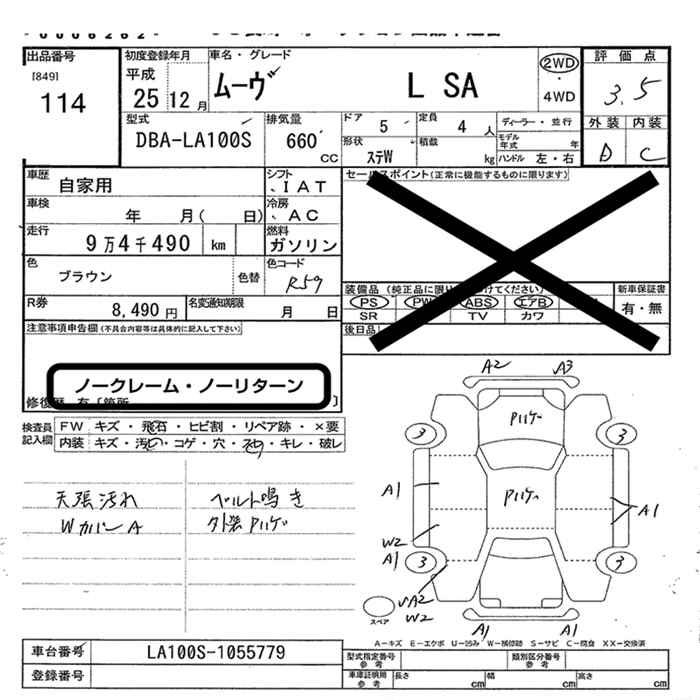 出品番号
[849]
114
初度登録年月
平成
25 12 月
車名・グレード
ムーヴ L SA
2WD
・
4WD
評価点
3.5
外装 内装
D C
型式
DBA-LA100S
排気量
660
CC
ドア 5
定員 4 人
形状 ステW
積載 kg
ディーラー・並行
モデル年式 年
ハンドル 左・右
車歴 自家用
シフト IAT
車検 年 月( 日)
冷房 AC
走行 9万4千490 km
燃料 ガソリン
色 ブラウン
色替
色コード R59
R券 8,490 円
名変通知期限 月 日
セールスポイント(正常に機能するものに限ります)
装備品
PS PW ABS エアB
SR TV カワ
新車保証書
有・無
後日品
注意事項申告欄(不具合内容等は具体的に記入して下さい)
ノークレーム・ノーリターン
修復歴 有〔箇所 〕
検査員記入欄
FW キズ・飛石・ヒビ割・リペア跡・×要
内装 キズ・汚れ・コゲ・穴・・キレ・破レ
天張汚れ
WカバーA
ベルト鳴き
外装Pハゲ
A2 A3
Pハゲ
3 3
A1
Pハゲ
A1
W2
A1
3 3
A2
W2
スペア
A1 A1
A―キズ E―エクボ U―凹み W―補修跡 S―サビ C―腐食 XX―交換済
車台番号 LA100S-1055779
登録番号
型式指定番号参考
類別区分番号参考
車庫証明用参考
長さ cm
幅 cm
高さ cm